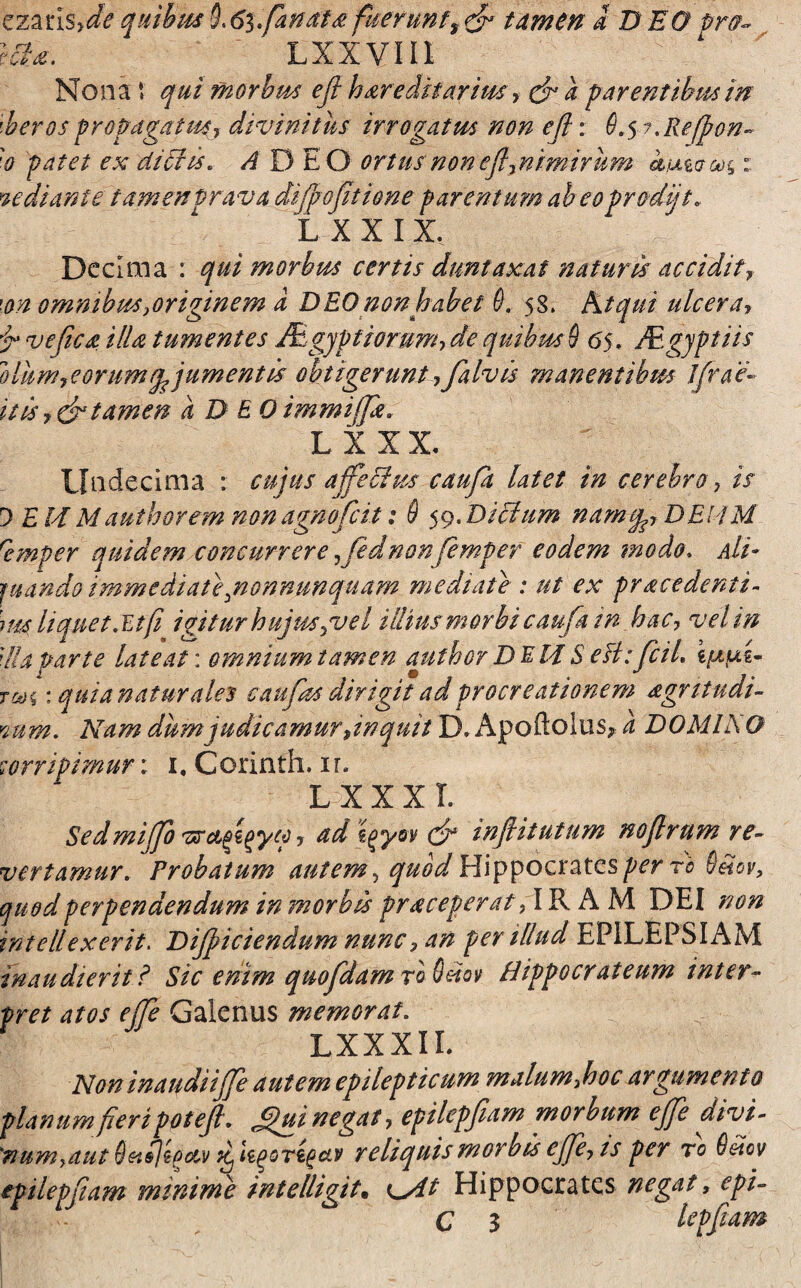 ezaris, de quibus θ. 63. sanatæ fuerunt, & tamen à DEO pro-
ectæ. LXXVIII
Nona: qui morbus est hæreditarius, & à parentibus in
iberos propagatus, divinitùs irrogatus non est: θ. 57. Respon-
io patet ex dictis. A DEO ortus non est, nimirùm ἀμέσως:
nediante tamen prava dispositione parentum ab eo prodijt.
LXXIX.
Decima: qui morbus certis duntaxat naturis accidit,
on omnibus, originem à DEO non habet θ. 58. Atqui ulcera,
& vesicæ illæ tumentes Ægyptiorum, de quibus θ 65. Ægyptiis
olùm, eorumq; jumentis obtigerunt, salvis manentibus Israë-
itis, & tamen à DEO immissæ.
LXXX.
Undecima: cujus affectus causa latet in cerebro, is
DEUM authorem non agnoscit: θ 59. Dictum namq;, DEUM
semper quidem concurrere, sed non semper eodem modo. Ali-
quando immediatè, nonnunquam mediatè: ut ex præcedenti-
bus liquet. Etsi igitur hujus, vel illius morbi causa in hac, vel in
illa parte lateat: omnium tamen author DEUS est: scil. ἐμμέ-
σως: quia naturales causas dirigit ad procreationem ægritudi-
num. Nam dùm judicamur, inquit D. Apostolus, à DOMINO
corripimur: 1. Corinth. 11.
LXXXI.
Sed misso παρέργῳ, ad ἔργον & institutum nostrum re-
vertamur. Probatum autem, quòd Hippocrates per τὸ θεῖον,
quod perpendendum in morbis præceperat, IRAM DEI non
intellexerit. Dispiciendum nunc, an per illud EPILEPSIAM
inaudierit? Sic enim quosdam τὸ θεῖον Hippocrateum inter-
pretatos esse Galenus memorat.
LXXXII.
Non inaudiisse autem epilepticum malum, hoc argumento
planum fieri potest. Qui negat, epilepsiam morbum esse divi-
num, aut θειοτέραν καὶ ἱεροτέραν reliquis morbis esse, is per τὸ θεῖον
epilepsiam minimè intelligit. At Hippocrates negat, epi-
C 3 lepsiam